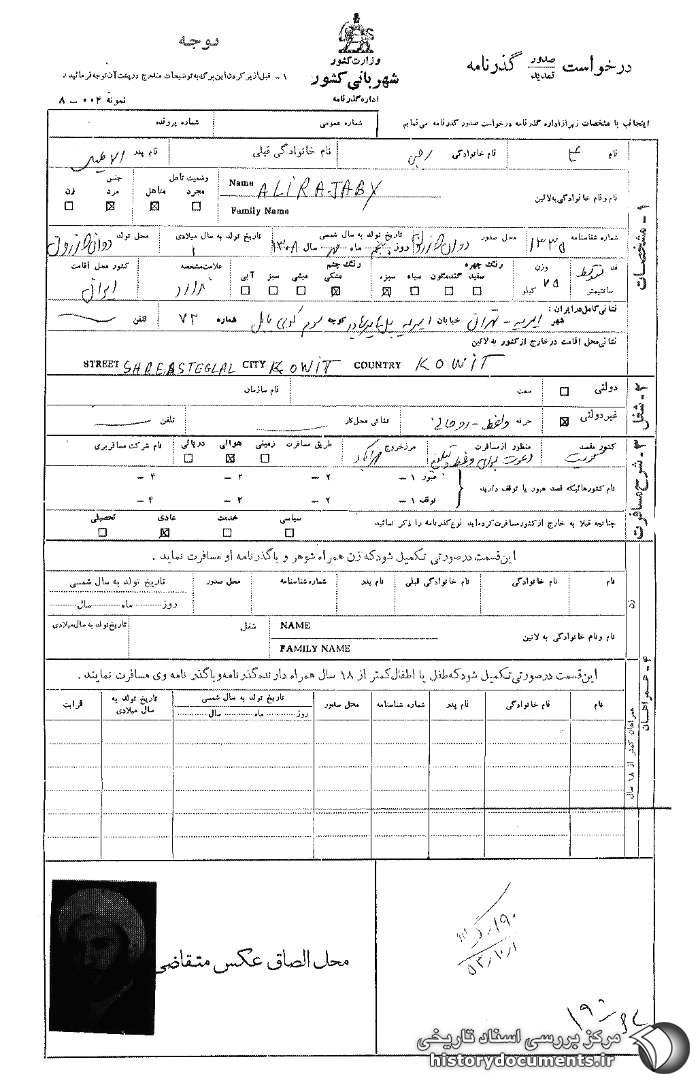 دوجه
وزارت کشور
شهربانی کشور
اداره گذرنامه
درخواست صدور تمدید گذرنامه
۱ – قبل از پر کردن این برگ به توضیحات مندرج در پشت آن توجه فرمائید
نمونه ۰۰۴ – ۸
اینجانب با مشخصات زیر از اداره گذرنامه درخواست صدور گذرنامه می نمایم
شماره عمومی
شماره پرونده
۱ – مشخصات
نام
نام خانوادگی
نام خانوادگی قبلی
نام پدر
نام و نام خانوادگی به لاتین
Name
ALI RAJABY
Family Name
وضعیت تاهل
مجرد متاهل
جنس
مرد زن
شماره شناسنامه ۱۳۳۵
محل صدور
تاریخ تولد به سال شمسی
روز پنجم ماه مهر سال ۱۳۰۸
تاریخ تولد به سال میلادی
محل تولد
قد متوسط
سانتیمتر
وزن ۷۵ کیلو
رنگ چهره
سفید گندمگون سیاه سبزه
رنگ چشم
مشکی میشی سبز آبی
علامت مشخصه ندارد
کشور محل اقامت ایران
نشانی کامل در ایران :
شهر تهران خیابان کوچه شماره ۷۳ تلفن
نشانی محل اقامت در خارج از کشور به لاتین
STREET SHAREASTEGLAL CITY KOWIT COUNTRY KOWIT
۲ – شغل
دولتی
سمت
نام سازمان
غیر دولتی
حرفه واعظ – روحانی
نشانی محل کار
تلفن
۳ – شرح مسافرت
کشور مقصد کویت
منظور از مسافرت
مرز خروج مهرآباد
طریق مسافرت
زمینی هوائی دریائی
نام شرکت مسافربری
نام کشورهائیکه قصد عبور یا توقف دارید
عبور ۱ – ۲ – ۳ – ۴ –
توقف ۱ – ۲ – ۳ – ۴ –
چنانچه قبلا به خارج از کشور مسافرت کرده‌اید نوع گذرنامه را ذکر نمائید.
سیاسی خدمت عادی تحصیلی
۴ – همراهان
این قسمت در صورتی تکمیل شود که زن همراه شوهر و با گذرنامه او مسافرت نماید.
زن
نام
نام خانوادگی
نام خانوادگی قبلی
نام پدر
شماره شناسنامه
محل صدور
تاریخ تولد به سال شمسی
روز ماه سال
نام و نام خانوادگی به لاتین
NAME
FAMILY NAME
شغل
تاریخ تولد به سال میلادی
این قسمت در صورتی تکمیل شود که طفل یا اطفال کمتر از ۱۸ سال همراه دارنده گذرنامه و با گذرنامه وی مسافرت نمایند.
همراهان کمتر از ۱۸ سال
نام
نام خانوادگی
نام پدر
شماره شناسنامه
محل صدور
تاریخ تولد به سال شمسی
روز ماه سال
تاریخ تولد به سال میلادی
قرابت
محل الصاق عکس متقاضی
مرکز بررسی اسناد تاریخی
historydocuments.ir